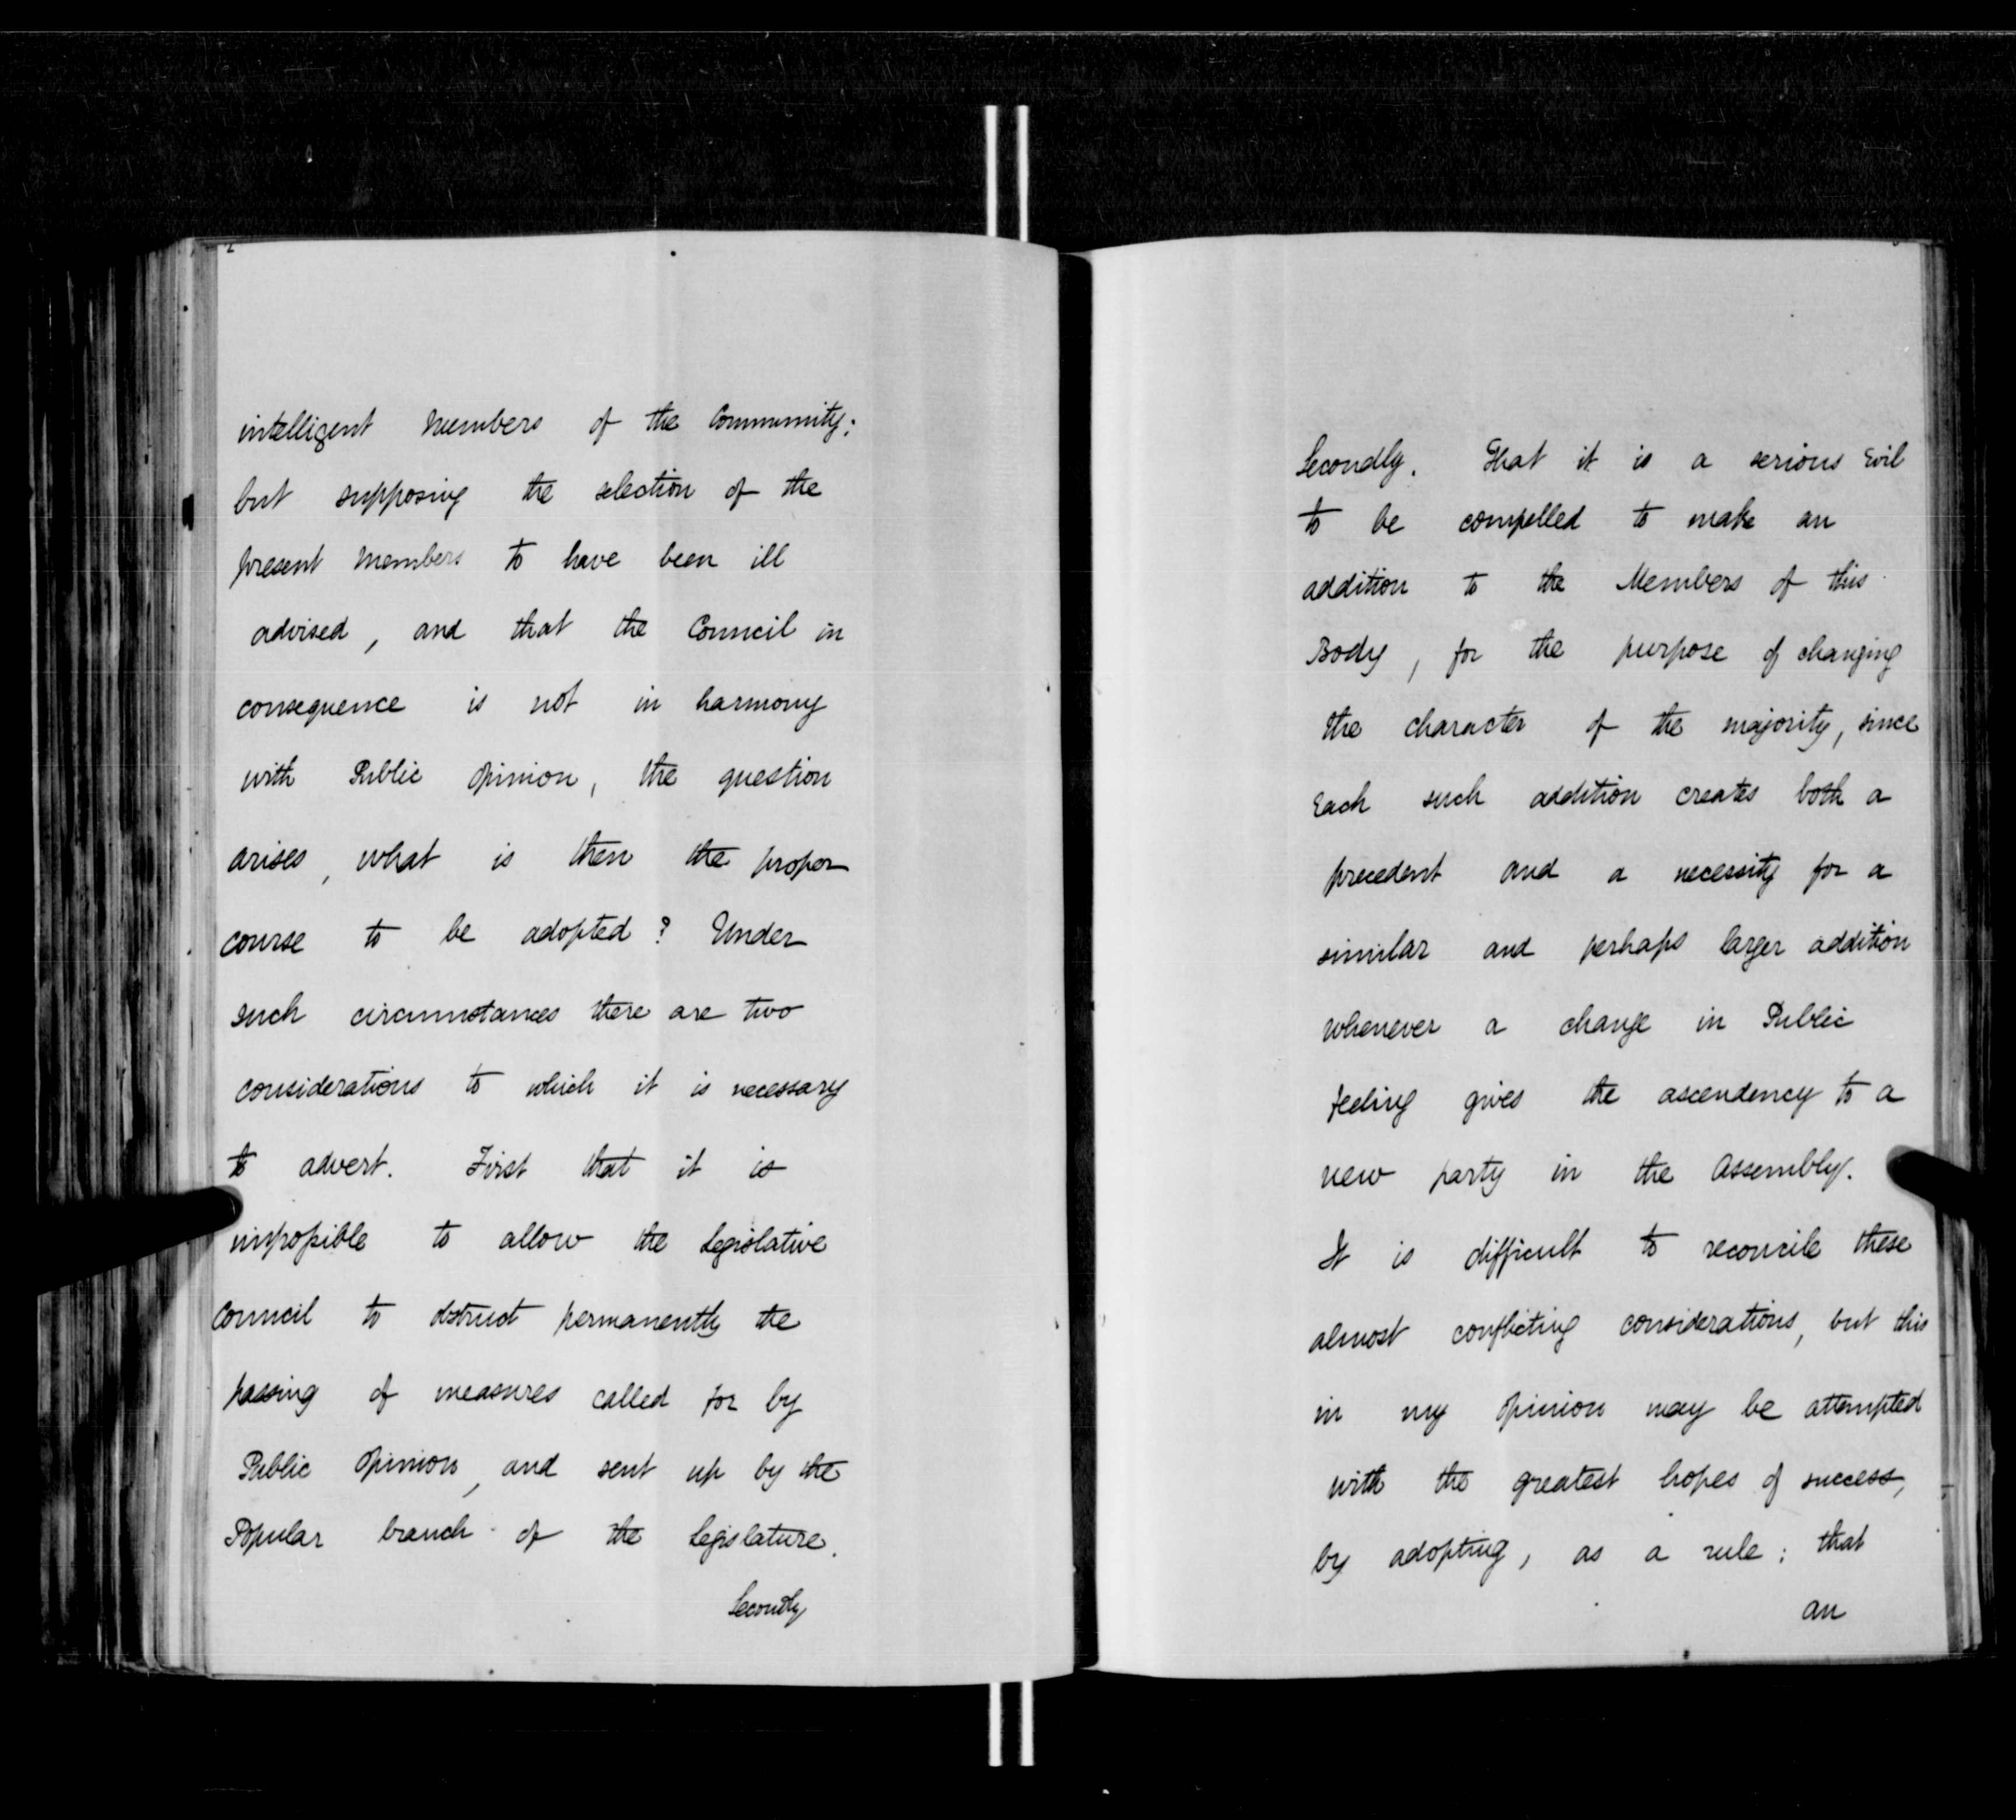 intelligent Members of the Community;
but supposing the selection of the
present Members to have been ill
advised, and that the Council in
consequence is not in harmony
with Public Opinion, the question
arises, what is then the proper
course to be adopted? Under
such circumstances there are two
considerations to which it is necessary
to advert. First that it is
impossible to allow the Legislative
Council to obstruct permanently the
passing of measures called for by
Public Opinion, and sent up by the
Popular branch of the Legislature.
Secondly
Secondly. That it is a serious Evil
to be compelled to make an
addition to the Members of this
Body, for the purpose of changing
the character of the majority, since
Each such addition creates both a
precedent and a necessity for a
similar and perhaps larger addition
whenever a change in Public
feeling gives the ascendency to a
new party in the Assembly.
It is difficult to reconcile these
almost conflicting considerations, but this
in my Opinion may be attempted
with the greatest hopes of success,
by adopting, as a rule; that
an